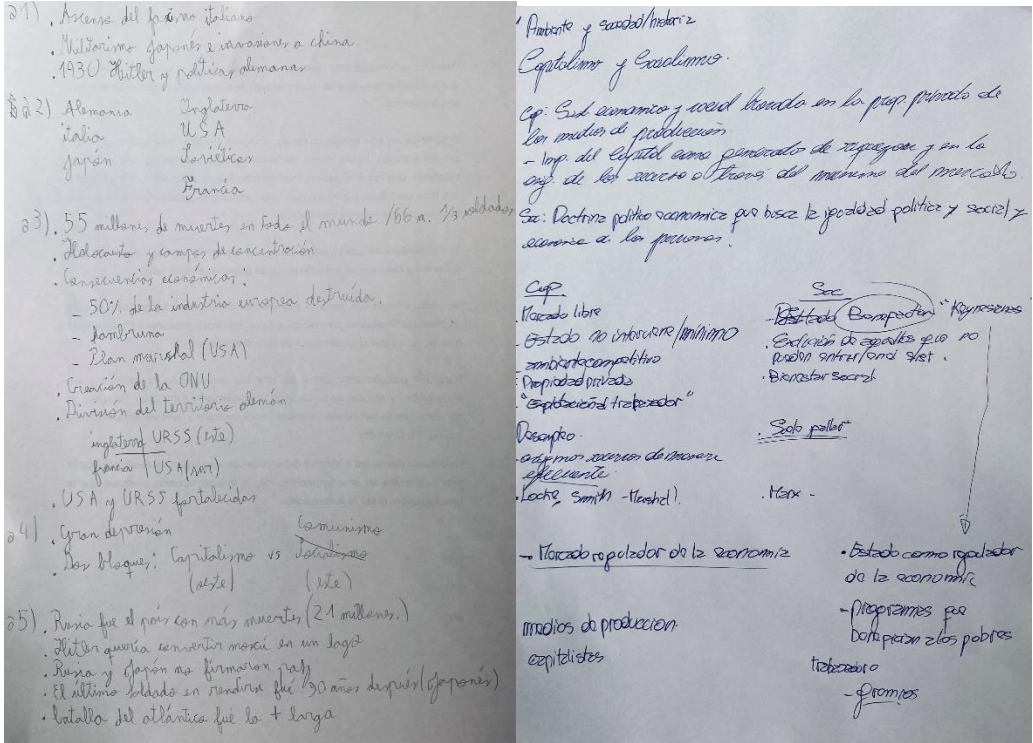 a1). Ascenso del fascismo italiano
. Militarismo Japonés e invasiones a china
. 1930 Hitler y políticas alemanas
a2) Alemania Inglaterra
italia USA
Japón Soviéticos
Francia
a3). 55 millones de muertes en todo el mundo /66 m. 1/3 soldados
. Holocausto y campos de concentración
. Consecuencias económicas:
- 50% de la industria europea destruída.
- hambruna
- Plan marshal (USA)
. Creación de la ONU
. División del territorio alemán
inglaterra URSS (este)
francia USA (sur)
. USA y URSS fortalecidas
a4) . Gran depresión
Comunismo
. Dos bloques: Capitalismo vs Socialismo
(oeste) (este)
a5) . Rusia fue el país con más muertes (21 millones.)
. Hitler quería convertir moscú en un lago
. Rusia y Japón no firmaron paz
. El último soldado en rendirse fué 30 años después (Japonés)
. batalla del atlántico fué la + larga
Ambiente y sociedad/historia
Capitalismo y Socialismo.
Cap: Sist economico y social basado en la prop. privada de
los medios de producción
- Imp. del Capital como generador de riquezas y en la
asig. de los recursos a traves del mecanismo del mercado.
Soc: Doctrina politico economica que busca la igualdad politica y social y
economica de las personas.
Cap
. Mercado libre
- Estado no interviene/mínimo
- ambiente competitivo
- Propiedad privada
. "Explotación al trabajador"
Desempleo.
- asignamos recursos de manera
eficiente.
. Locke, Smith - Marshal).
- Mercado regulador de la economia
medios de produccion
capitalistas
Soc
- Estado Benefactor " Keynesianos
. Exclusión de aquellos que no
pueden entrar/en el sist.
. Bienestar social.
. Solo
. Marx -
. Estado como regulador
de la economía
- Programas que
benefician a los pobres
trabajadores
- gremios